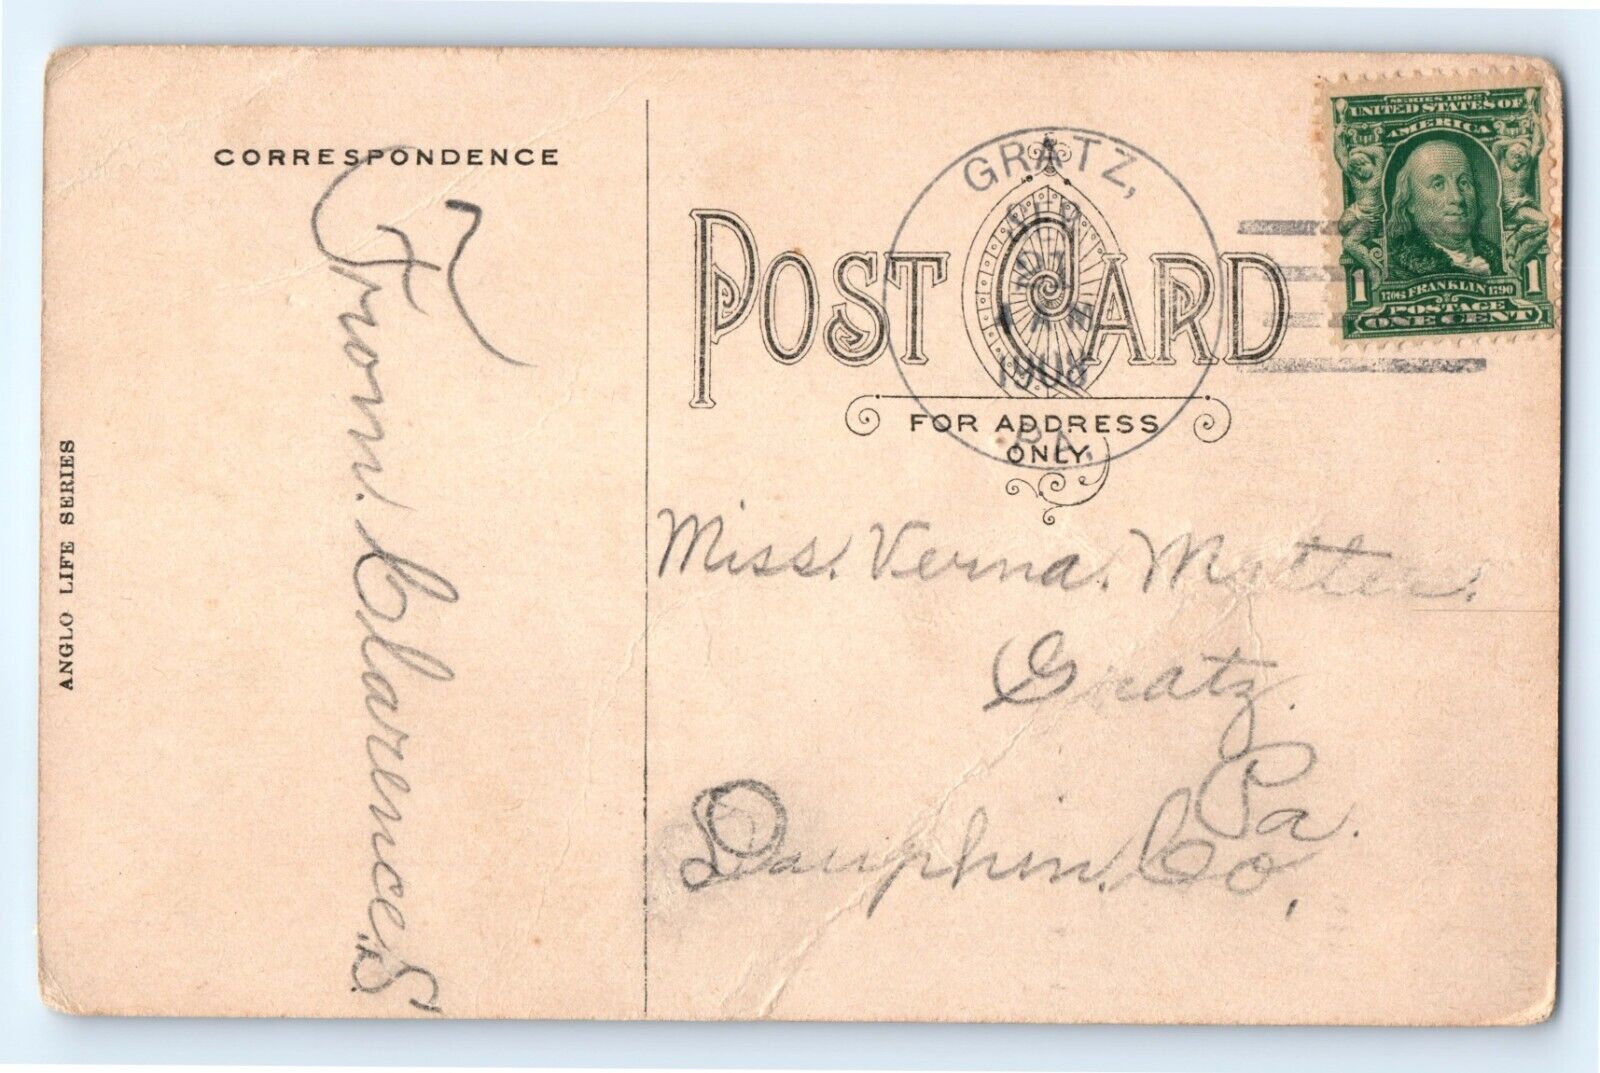 CORRESPONDENCE
From. Clarence. S.
ANGLO LIFE SERIES
POST CARD
FOR ADDRESS
ONLY
GRATZ,
1908
PA.
SERIES 1902
UNITED STATES OF
AMERICA
1 1
1706 FRANKLIN 1790
POSTAGE
ONE CENT
Miss. Verna. Matter.
Gratz.
Pa.
Dauphin. Co.